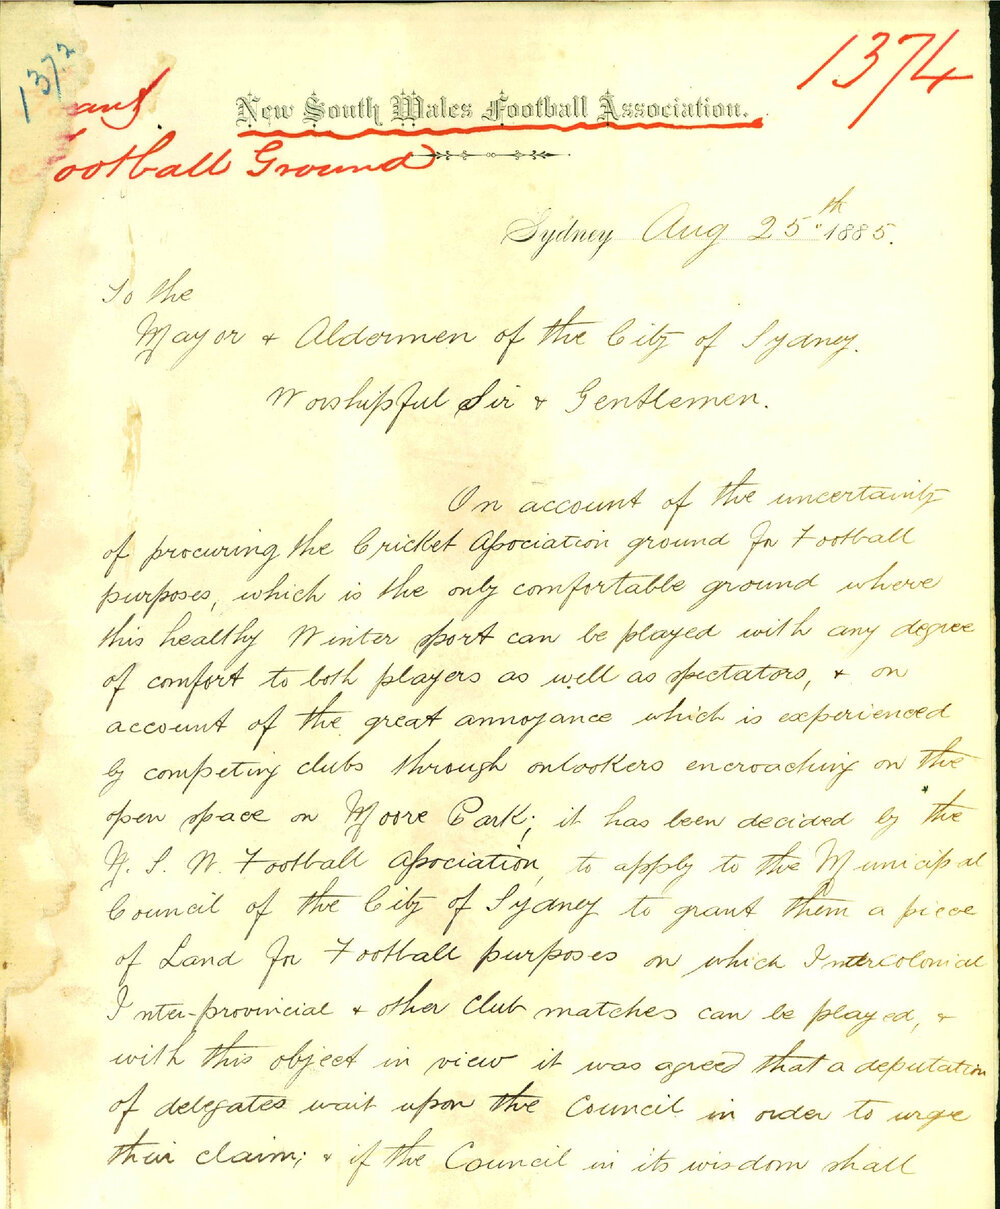 1372
1374
New South Wales Football Association.
ootball Ground
Sydney Aug 25th 1885.
To the
Mayor & Aldermen of the City of Sydney.
Worshipful Sir & Gentlemen.
On account of the uncertainty
of procuring the Cricket Association ground for Football
purposes, which is the only comfortable ground where
this healthy Winter sport can be played with any degree
of comfort to both players as well as spectators, & on
account of the great annoyance which is experienced
by competing clubs through onlookers encroaching on the
open space on Moore Park; it has been decided by the
N. S. W. Football Association, to apply to the Municipal
Council of the City of Sydney to grant them a piece
of Land for Football purposes on which Intercolonial
Inter-provincial & other Club matches can be played, &
with this object in view it was agreed that a deputation
of delegates wait upon the Council in order to urge
their claim; & if the Council in its wisdom shall